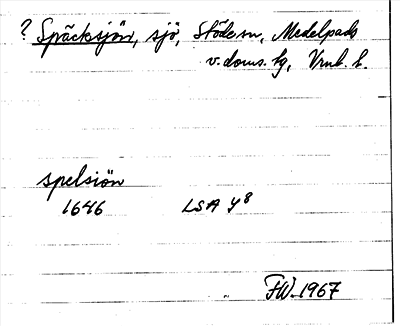 ? Späcksjön, sjö, Stöde sn, Medelpads
v. doms. hg, Vrnl. l.
spelsiön
1646 LSA Y8
FW. 1967